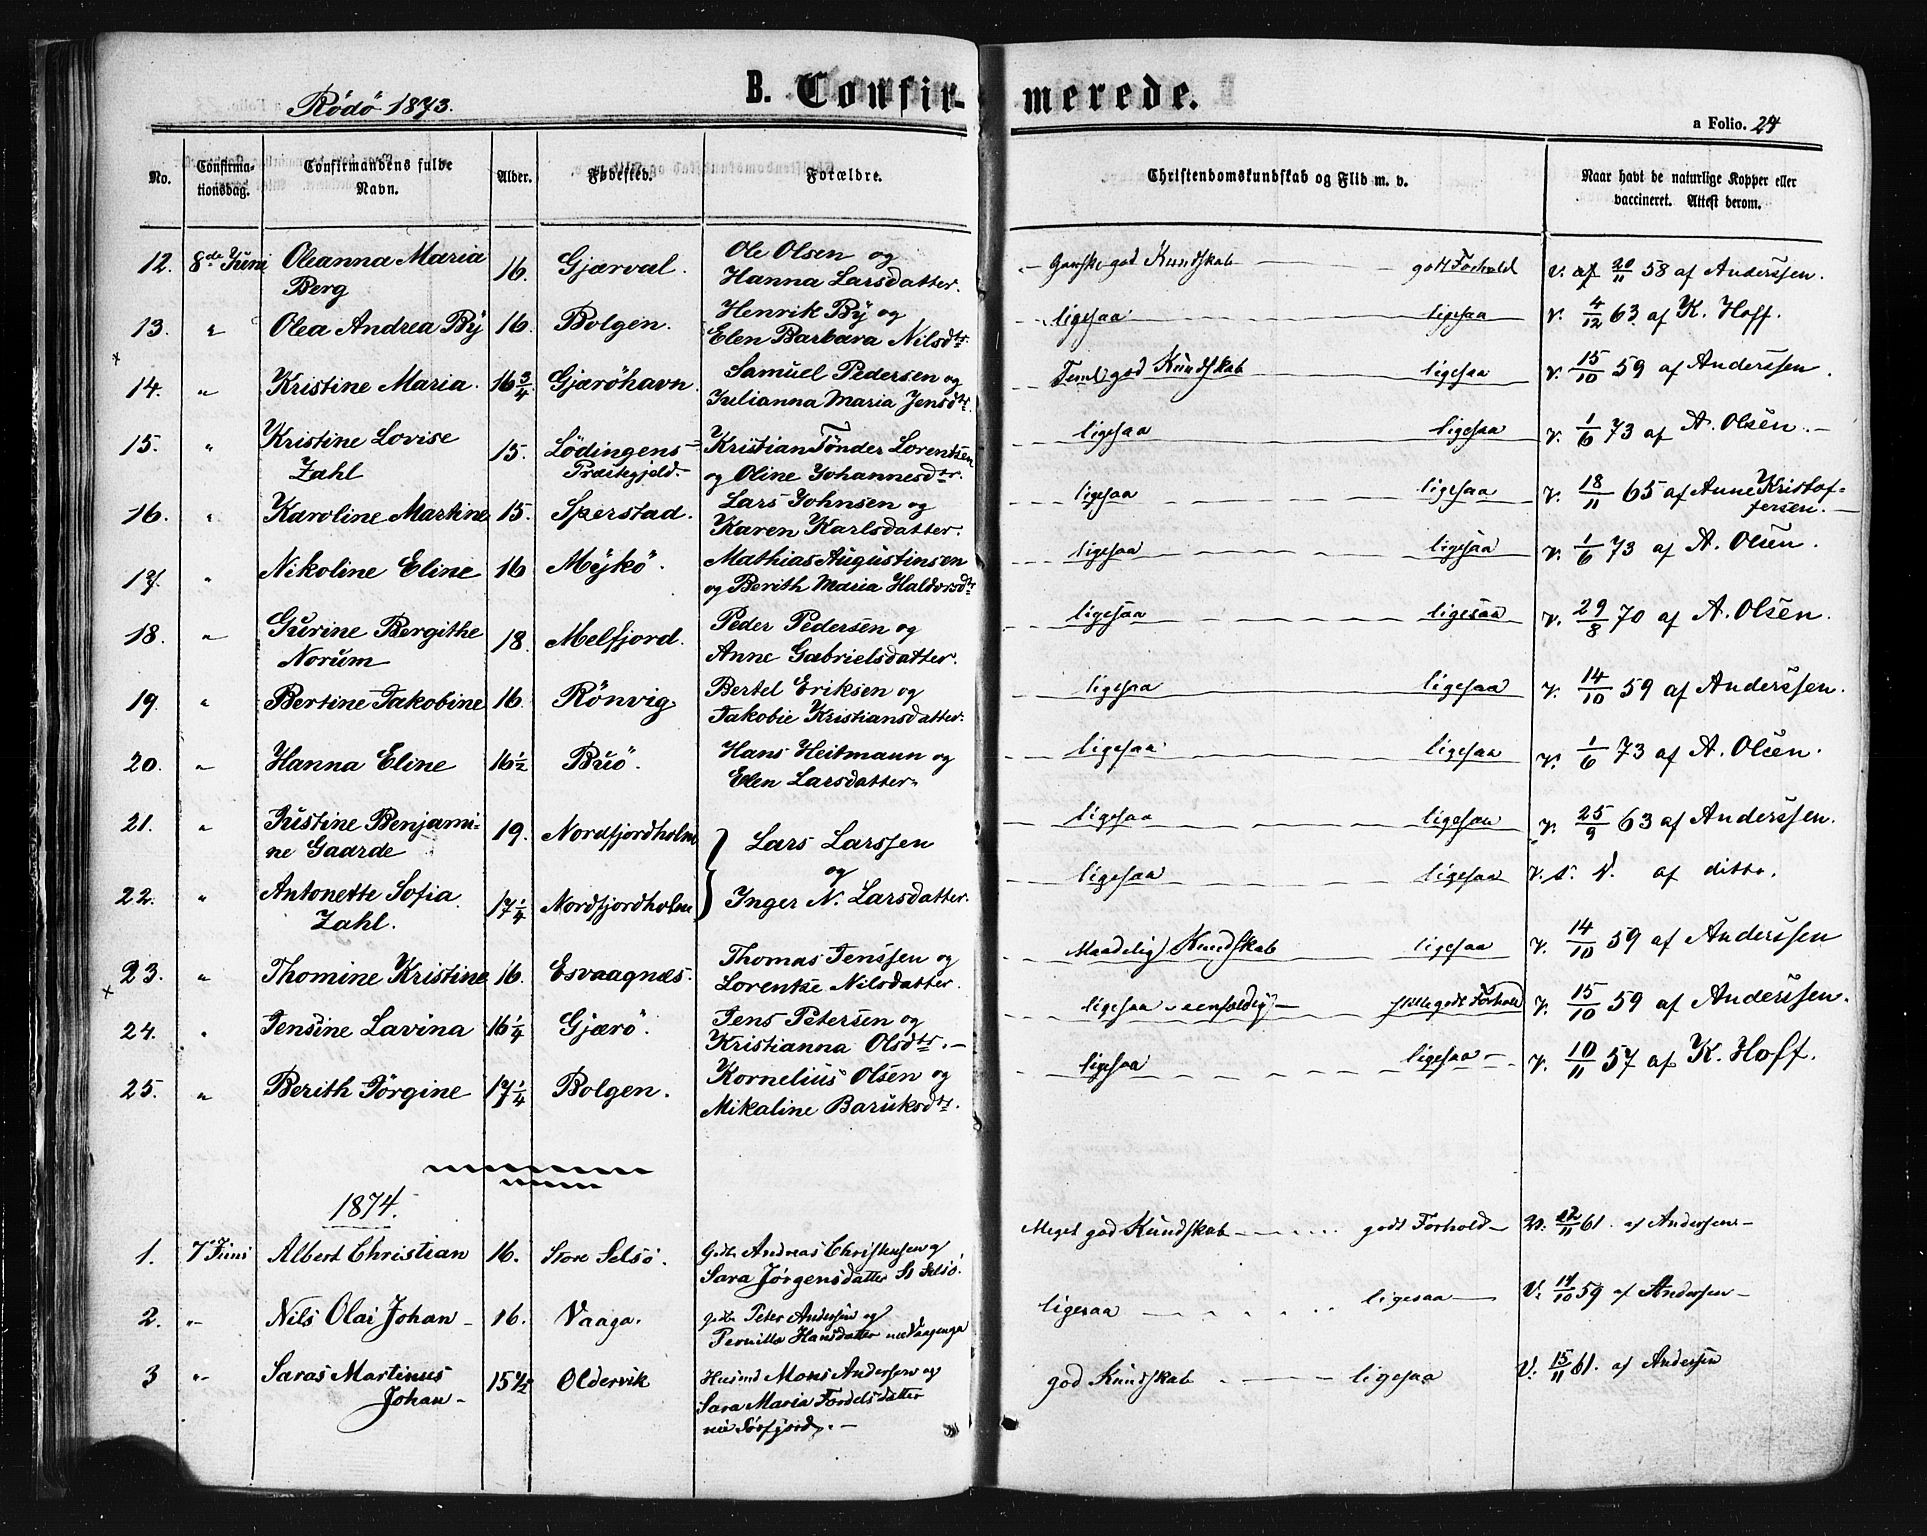 Rödö 1873.
B. Confirmerede.
a Folio. 24
No.
Confirmationsdag.
Confirmandens fulde Navn.
Alder.
Fødested.
Forældre.
Christendomskundskab og Flid m. v.
Naar havt de naturlige Kopper eller vaccineret. Attest derom.
12. 8de Juni Oleanna Maria Berg 16. Gjærval. Ole Olsen og Hanna Larsdatter. Ganske god Kundskab godt Forhold v. af 20/11 58 af Anderssen.
13. " Olea Andrea By 16. Bolgen. Henrik By og Elen Barbara Nilsdtr ligesaa ligesaa v. 4/12 63 af K. Hoff.
14. " Kristine Maria. 16 3/4 Gjæröhavn. Samuel Pedersen og Julianna Maria Jensdtr. Teml. god Kundskab ligesaa v. 15/10 59 af Anderssen.
15. " Kristine Lovise Zahl 15. Lödingens Præstegjeld. Kristian Tönder Lorentsen og Oline Johannesdtr. ligesaa ligesaa v. 1/6 73 af A. Olsen.
16. " Karoline Martine 15. Sperstad. Lars Johnsen og Karen Karlsdatter. ligesaa ligesaa v. 18/11 65 af Anne Kristoffersen.
17. " Nikoline Eline 16 Mykö. Mathias Augustinsen og Berith Maria Haldorsdtr ligesaa ligesaa v. 1/6 73 af A. Olsen.
18. " Gurine Bergithe Norum 18. Melfjord. Peder Pedersen og Anne Gabrielsdatter. ligesaa ligesaa v. 29/8 70 af A. Olsen.
19. " Bertine Jakobine 16. Rönvig. Bertel Eriksen og Jakobie Kristiansdatter. ligesaa ligesaa v. 14/10 59 af Anderssen.
20. " Hanna Eline 16 1/2 Buö. Hans Heitmann og Elen Larsdatter ligesaa ligesaa v. 1/6 73 af A. Olsen.
21. " Justine Benjamine Gaarde 19. Nordfjordholm Lars Larssen og Inger N. Larsdatter. ligesaa ligesaa v. 25/9 63 af Anderssen.
22. " Antonette Sofia Zahl. 17 1/4 Nordfjordholm ligesaa ligesaa v. s. d. af ditto.
23. " Thomine Kristine 16. Esvaagnæs. Thomas Jenssen og Lorentse Nilsdatter. Maadelig Kundskab ligesaa v. 14/10 59 af Anderssen
24. " Jensine Lavina 16 1/4 Gjærö. Jens Petersen og Kristianna Olsdtr. ligesaa - eenfoldig - stille godt Forhold v. 15/10 59 af Anderssen.
25. " Berith Jörgine 17 1/4 Bolgen. Kornelius Olsen og Mikaline Baruksdtr. ligesaa ligesaa v. 10/11 57 af K. Hoff.
1874.
1. 7 Juni Albert Christian 16. Store Selsö. Gdb. Andreas Christensen og Sara Jørgensdatter St Selsö. Meget god Kundskab godt Forhold V. 12/11 61. af Andersen
2. " Nils Olai Johan 16. Vaaga. Gdb. Peter Andersen og Pernilla Hansdatter Meget ligesaa ligesaa V. 14/10 59 af Andersen
3 " Saras Martinus Johan 15 1/2 Oldervik Husmd Mons Andersen og Sara Maria Fordelsdatter Sörfjord. god Kundskab ligesaa V. 15/11 61. af Andersen